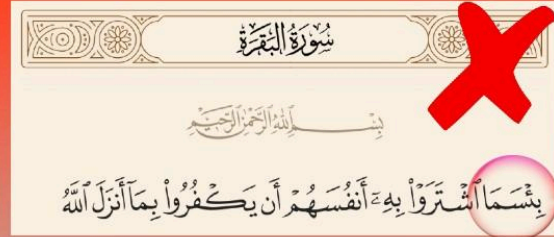 سُورَةُ البَقَرَةِ
بِسْمِ ٱللَّهِ ٱلرَّحْمَٰنِ ٱلرَّحِيمِ
بِئْسَمَا ٱشْتَرَوْا۟ بِهِۦٓ أَنفُسَهُمْ أَن يَكْفُرُوا۟ بِمَآ أَنزَلَ ٱللَّهُ